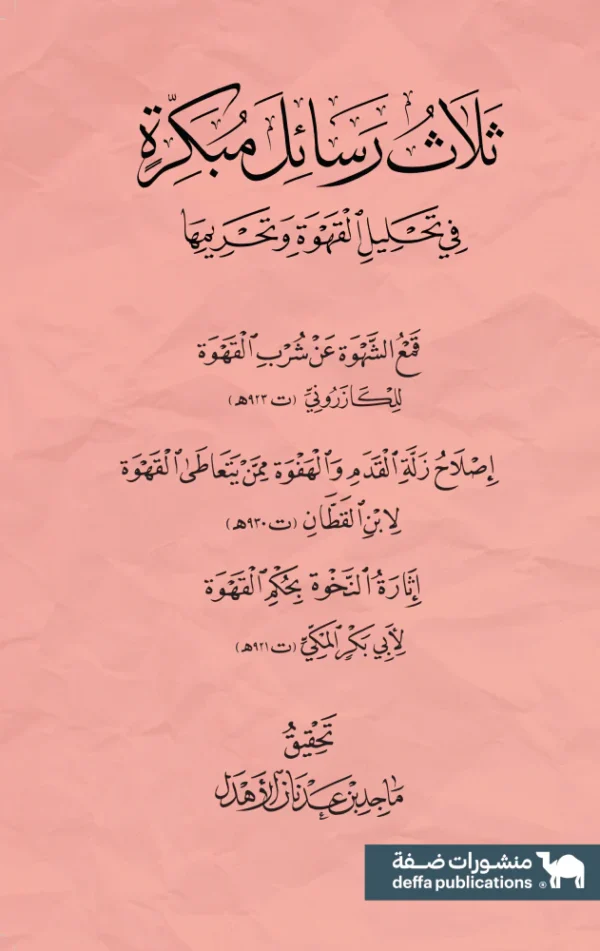 ثَلَاثُ رَسَائِلَ مُبَكِّرَةٍ
فِي تَحْلِيلِ ٱلْقَهْوَةِ وَتَحْرِيمِهَا
قَمْعُ الشَّهْوَة عَنْ شُرْبِ ٱلْقَهْوَة
لِلْكَازَرُونِيِّ (ت ٩٢٣هـ)
إِصْلَاحُ زَلَّةِ ٱلْقَدَمِ وَٱلْهَفْوَة مِمَّنْ يَتَعَاطَى ٱلْقَهْوَة
لِابْنِ ٱلْقَطَّانِ (ت ٩٣٠هـ)
إِثَارَةُ ٱلنَّخْوَة بِحُكْمِ ٱلْقَهْوَة
لِأَبِي بَكْرٍ ٱلْمَكِّيِّ (ت ٩٢١هـ)
تَحْقِيقُ
مَاجِد بْن عَدْنَان ٱلْأَهْدَل
منشورات ضفة
deffa publications ®